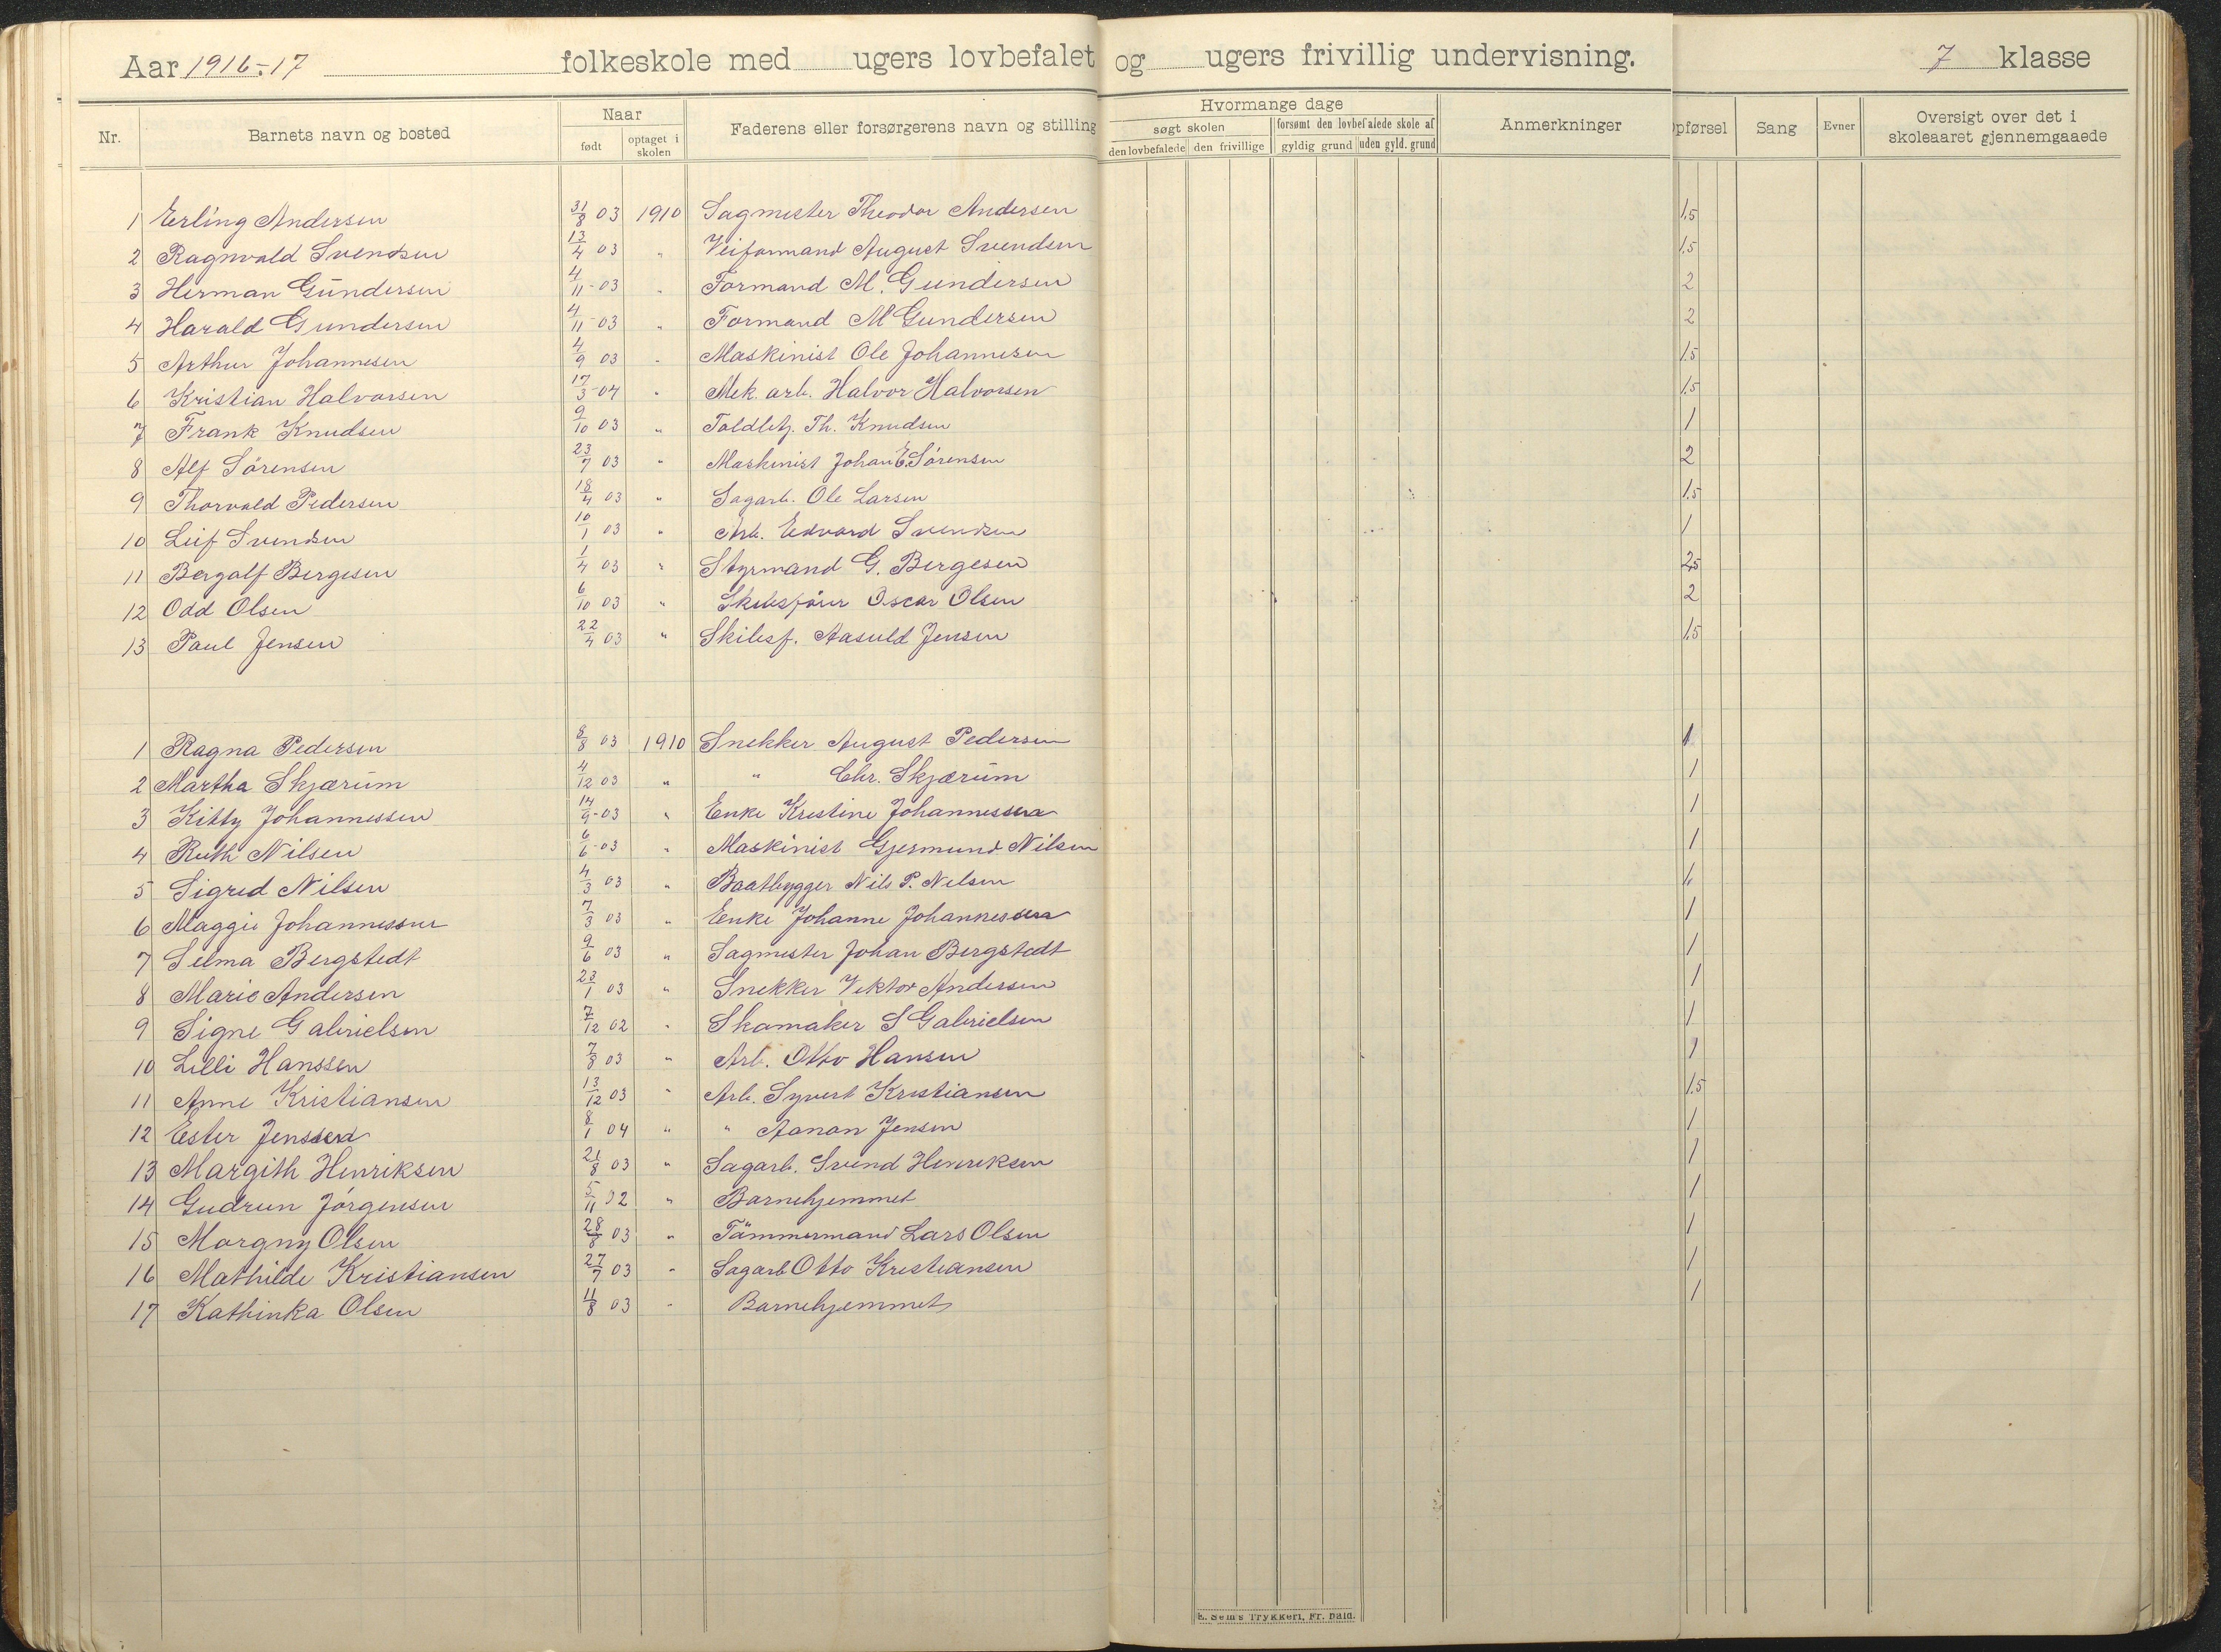 Aar 1916-17 folkeskole med ugers lovbefalet og ugers frivillig undervisning. 7 klasse
Nr. Barnets navn og bosted Naar født optaget i skolen Faderens eller forsørgerens navn og stilling Hvormange dage søgt skolen den lovbefalede den frivillige forsømt den lovbefalede skole af gyldig grund uden gyld. grund Anmerkninger pførsel Sang Evner Oversigt over det i skoleaaret gjennemgaaede
1 Erling Andersen 31/8 03 1910 Sagmester Theodor Andersen 1,5
2 Ragnvald Svendsen 13/4 03 " Veiformand August Svendsen 1,5
3 Herman Gundersen 4/11-03 " Formand M. Gundersen 2
4 Harald Gundersen 4/11-03 " Formand M Gundersen 2
5 Arthur Johannesen 4/9 03 " Maskinist Ole Johannesen 1.5
6 Kristian Halvorsen 17/3-04 " Mek. arb. Halvor Halvorsen 1.5
7 Frank Knudsen 9/10 03 " Toldbetj. Th. Knudsen 1
8 Alf Sörensen 23/7 03 " Maskinist Johan E. Sörensen 2
9 Thorvald Pedersen 18/4 03 " Sagarb. Ole Larsen 1.5
10 Leif Svendsen 10/1 03 " Arb. Edvard Svendsen 1
11 Bergolf Bergesen 1/4 03 " Styrmand G. Bergesen 2,5
12 Odd Olsen 6/10 03 " Skibsförer Oscar Olsen 2
13 Paul Jensen 22/4 03 " Skibsf. Aasuld Jensen 1.5
1 Ragna Pedersen 8/8 03 1910 Snekker August Pedersen 1
2 Martha Skjærum 4/12 03 " " Chr. Skjærum 1
3 Kitty Johannessen 14/9-03 " Enke Kristine Johannessen 1
4 Ruth Nilsen 6/6-03 " Maskinist Gjermund Nilsen 1
5 Sigrid Nilsen 4/3 03 " Baatbygger Nils P. Nilsen 1
6 Maggie Johannessen 7/3 03 " Enke Johanne Johannessen 1
7 Selma Bergstedt 9/6 03 " Sagmester Johan Bergstedt 1
8 Marie Andersen 23/1 03 " Snekker Viktor Andersen 1
9 Signe Gabrielsen 7/12 02 " Skomaker S Gabrielsen 1
10 Lilli Hanssen 7/8 03 " Arb. Otto Hansen 1
11 Anne Kristiansen 13/12 03 " Arb. Syvert Kristiansen 1.5
12 Ester Jenssen 8/1 04 " " Aanon Jensen 1
13 Margith Henriksen 21/8 03 " Sagarb. Svend Henriksen 1
14 Gudrun Jörgensen 5/11 02 " Barnehjemmet 1
15 Margny Olsen 28/8 03 " Tömmermand Lars Olsen 1
16 Mathilde Kristiansen 27/7 03 " Sagarb Otto Kristiansen 1
17 Kathinka Olsen 11/8 03 " Barnehjemmet 1
E. Sem's Trykkeri, Fr. hald.